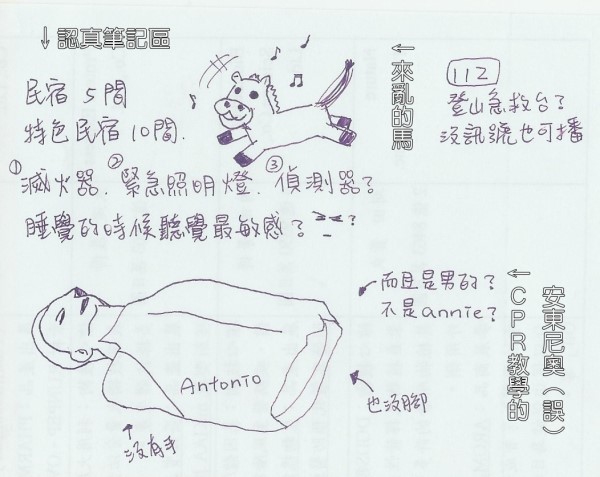 ↓認真筆記區
民宿 5間
特色民宿 10間.
①滅火器. ②緊急照明燈. ③偵測器?
睡覺的時候聽覺最敏感?
?
←來亂的馬
112
登山急救台?
沒訊號也可播
而且是男的?
不是annie?
←CPR教學的
安東尼奧(誤)
Antonio
也沒腳
沒有手